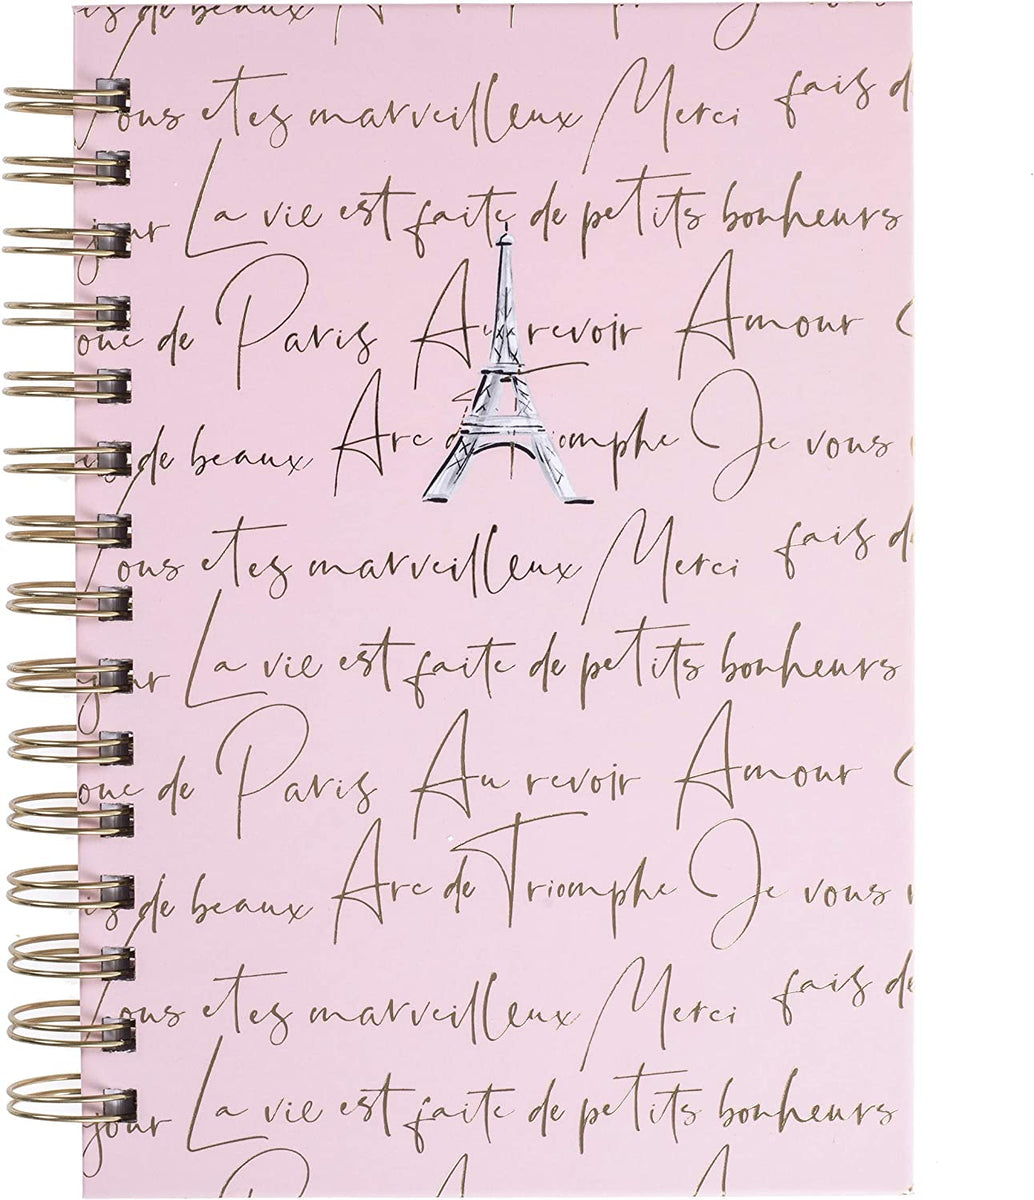 de beaux
Vous etes marveilleux Merci fais de
jour La vie est faite de petits bonheurs
de Paris Au revoir Amour
de beaux Arc de Triomphe Je vous
Vous etes marveilleux Merci fais de
jour La vie est faite de petits bonheurs
de Paris Au revoir Amour
de beaux Arc de Triomphe Je vous
Vous etes marveilleux Merci fais de
jour La vie est faite de petits bonheurs